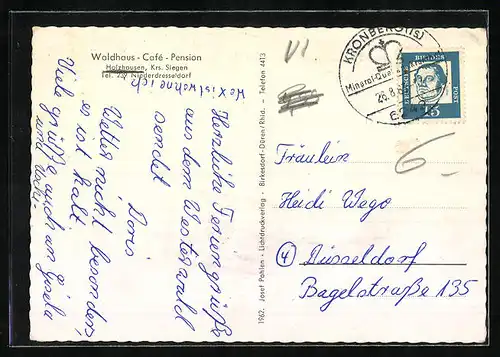 Waldhaus - Café - Pension
Holzhausen, Krs. Siegen
Tel. 259 Niederdresseldorf
wo X ist wohne ich
Herzliche Feriengrüße
aus dem Westerwald
sendet
Doris
Wetter nicht besonders,
es ist kalt.
Viele grüße auch an Gisela
und
1962. Josef Pahlen · Lichtdruckverlag · Birkesdorf-Düren/Rhld. - Telefon 4413
VI
KRONBERG (TS)
Mineral-Quelle
26.8.6
DEUTSCHE
BUNDES
POST
15
6.-
Fräulein
Heidi Wego
4 Düsseldorf
Bagelstraße 135